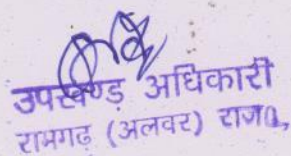 उपखण्ड अधिकारी
रामगढ़ (अलवर) राज०,